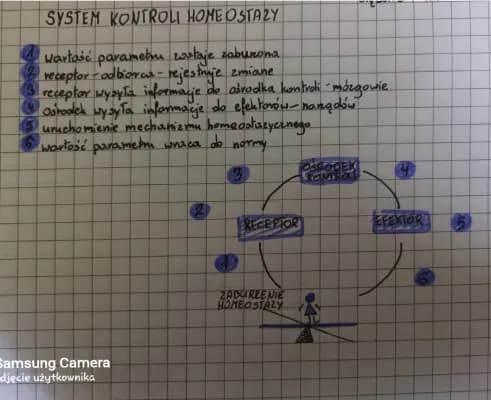 SYSTEM KONTROLI HOMEOSTAZY
1 wartość parametru zostaje zaburzona
2 receptor-odbiorca-rejestruje zmiane
3 receptor wysyła informacje do ośrodka kontroli-mózgowie
4 Ośrodek wysyła informacje do efektorów-narządów
5 uruchomienie mechanizmu homeostatycznego
6 wartość parametru wraca do normy
3
OŚRODEK KONTROLI
4
2
RECEPTOR
EFEKTOR
5
1
6
ZABURZENIE
HOMEOSTAZY
Samsung Camera
djęcie użytkownika